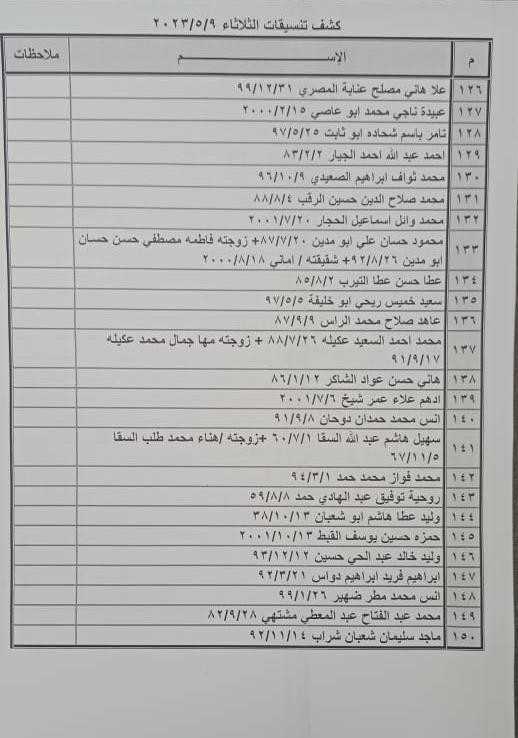 كشف تنسيقات الثلاثاء ٢٠٢٣/٥/٩
م الإســـــــم ملاحظات
١٢٦ علا هاني مصلح عناية المصري ٩٩/١٢/٣١
١٢٧ عبيدة ناجي محمد ابو عاصي ٢٠٠٠/٢/١٥
١٢٨ تامر باسم شحاده ابو ثابت ٩٧/٥/٢٥
١٢٩ احمد عبد الله احمد الجيار ٨٣/٢/٢
١٣٠ محمد نواف ابراهيم الصعيدي ٩٦/١٠/٩
١٣١ محمد صلاح الدين حسين الرقب ٨٨/٨/٤
١٣٢ محمد وائل اسماعيل الحجار ٢٠٠١/٧/٢٠
١٣٣ محمود حسان علي ابو مدين ٨٧/٧/٢٠+ زوجته فاطمه مصطفي حسن حسان
ابو مدين ٩٢/٨/٢٦+ شقيقته / اماني ٢٠٠٠/٨/١٨
١٣٤ عطا حسن عطا التيرب ٨٥/٨/٢
١٣٥ سعيد خميس ربحي ابو خليفة ٩٧/٥/٥
١٣٦ عاهد صلاح محمد الراس ٨٧/٩/٩
١٣٧ محمد احمد السعيد عكيله ٨٨/٧/٢٦ + زوجته مها جمال محمد عكيله
٩١/٩/١٧
١٣٨ هاني حسن عواد الشاكر ٨٦/١/١٢
١٣٩ ادهم علاء عمر شيخ ٢٠٠١/٧/٦
١٤٠ انس محمد حمدان دوحان ٩١/٩/٨
١٤١ سهيل هاشم عبد الله السقا ٦٠/٧/١ +زوجته /هناء محمد طلب السقا
٦٧/١١/٥
١٤٢ محمد فواز محمد حمد ٩٤/٣/١
١٤٣ روحية توفيق عبد الهادي حمد ٥٩/٨/٨
١٤٤ وليد عطا هاشم ابو شعبان ٣٨/١٠/١٣
١٤٥ حمزه حسين يوسف القبط ٢٠٠١/١٠/١٣
١٤٦ وليد خالد عبد الحي حسين ٩٣/١٢/١٢
١٤٧ ابراهيم فريد ابراهيم دواس ٩٢/٣/٢١
١٤٨ انس محمد مطر ضهير ٩٩/١/٢٦
١٤٩ محمد عبد الفتاح عبد المعطي مشتهي ٨٢/٩/٢٨
١٥٠ ماجد سليمان شعبان شراب ٩٢/١١/١٤